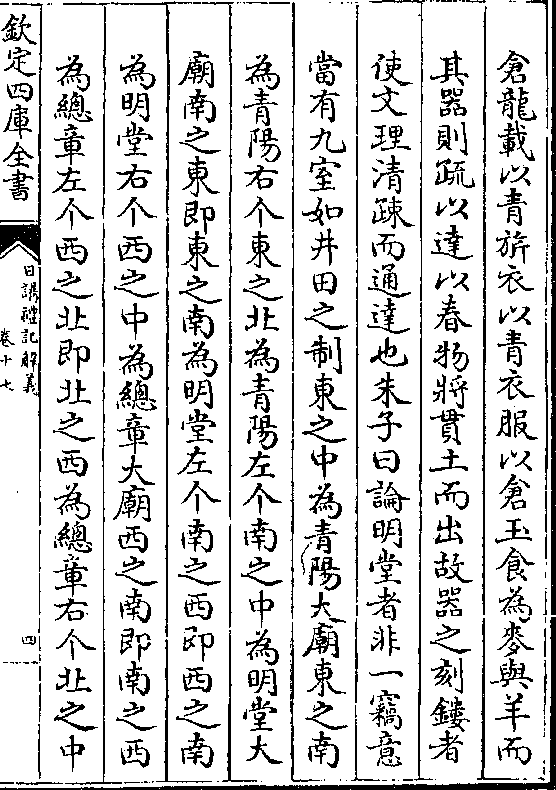 倉龍載以青旂衣以青衣服以倉玉食為麥與羊而
其器則疏以達以春物將貫土而出故器之刻鏤者
使文理清疎而通達也朱子曰論明堂者非一竊意
當有九室如井田之制東之中為青陽大廟東之南
為青陽右个東之北為青陽左个南之中為明堂大
廟南之東即東之南為明堂左个南之西即西之南
為明堂右个西之中為總章大廟西之南即南之西
為總章左个西之北即北之西為總章右个北之中
欽定四庫全書
日講禮記解義
卷十七
四